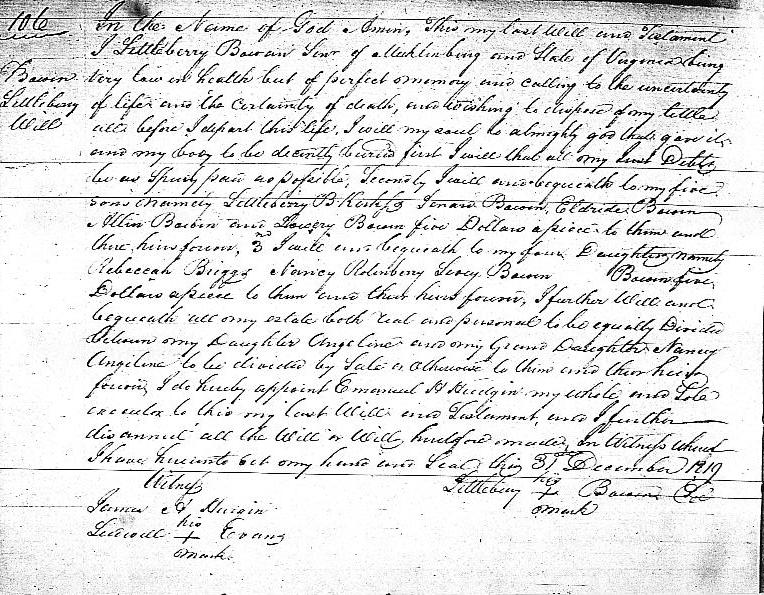 106
Bowen
Littleberry
Will
In the Name of God Amin, This my last Will and Testament
I Littleberry Bowen Senr of Mecklinburg and State of Virginia being
very law in health but of perfect memory and calling to the uncertainty
of life and the certainty of death, and wishing to dispose of my little
all before I depart this life, I will my soul to almighty god that gave it
and my body to be decently buried first I will that all my Just Debts
be as spedy paid as possible, Secondly I will and bequeath to my five
sons namely Littleberry B Bowen, Eldridge Bowen
Allin Bowen and Bowen five Dollars a piece to them and
their heirs forever, 3d I will and bequeath to my four Daughters, namely
Rebeccah Briggs Nancy Bowen Bowen five
Dollars a piece to them and their heirs forever, I further Will and
bequeath all my estate both real and personal to be equally Divided
between my Daughter Angeline and my Grand Daughter Nancy
Angeline to be divided by Sale or Otherwise to them and their heirs
forever, I do hereby appoint Emanuel H Hudgin my whole and Sole
executor to this my last Will and Testament, and I further
disannul all the Will or Wills heretofore made, In Witness whereof
I have hereunto set my hand and Seal this 31st December 1819
Witness
Littlebery his + mark Bowen
James H Hudgin
his
Evans
mark